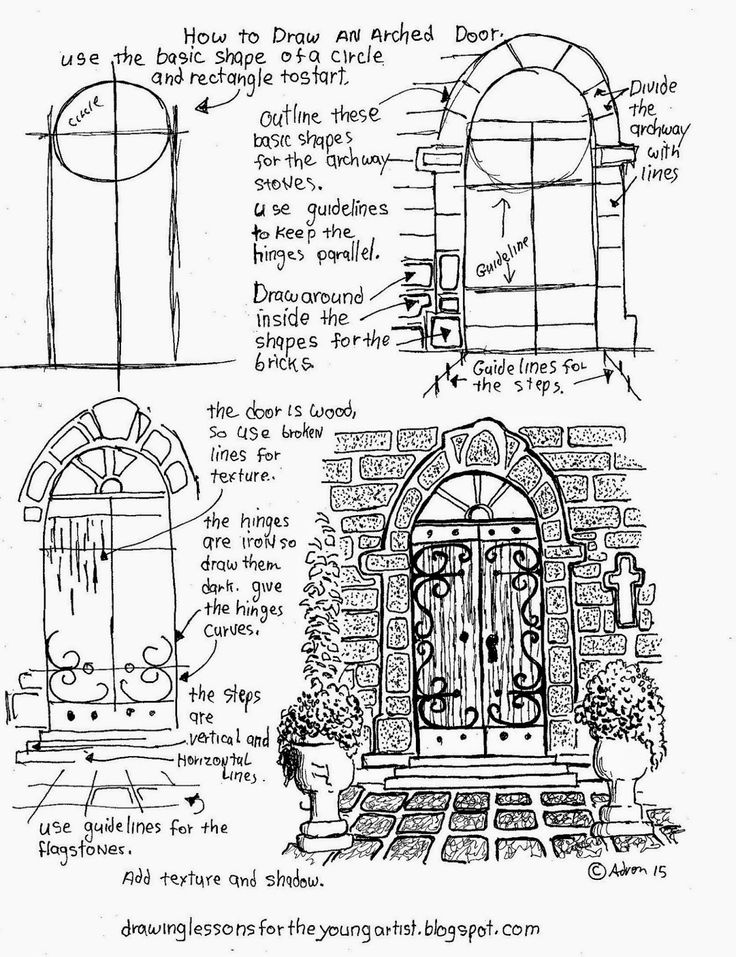 How to Draw AN Arched Door.
use the basic shape of a circle
and rectangle to start.
circle
outline these
basic shapes
for the archway
stones.
use guidelines
to keep the
hinges parallel.
Draw around
inside the
shapes for the
bricks.
Divide
the
archway
with
lines
Guideline
Guidelines for
the steps.
the door is wood,
so use broken
lines for
texture.
the hinges
are iron so
draw them
dark. give
the hinges
curves.
the steps
are
vertical and
Horizontal
Lines.
use guidelines for the
flagstones.
Add texture and shadow.
© Adron 15
drawinglessonsfortheyoungartist.blogspot.com